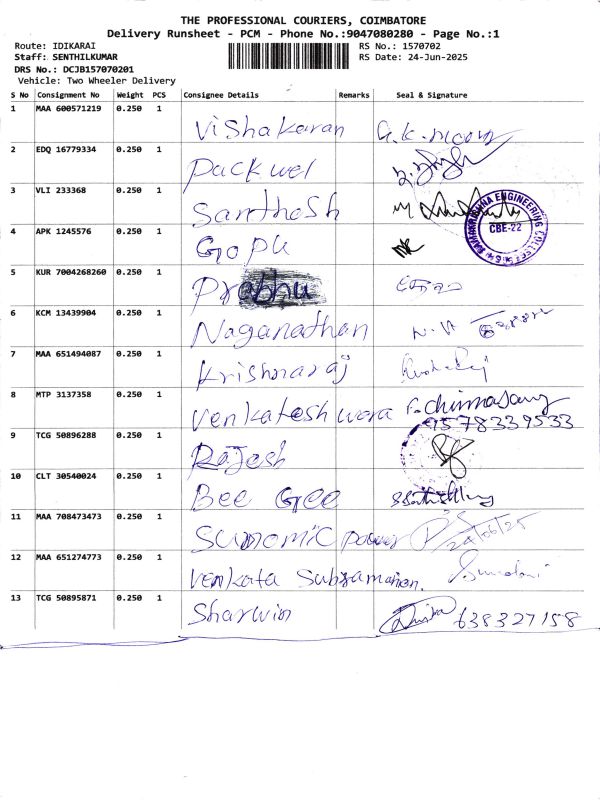 THE PROFESSIONAL COURIERS, COIMBATORE
Delivery Runsheet - PCM - Phone No.:9047080280 - Page No.:1
Route: IDIKARAI RS No.: 1570702
Staff: SENTHILKUMAR RS Date: 24-Jun-2025
DRS No.: DCJB157070201
Vehicle: Two Wheeler Delivery
S No Consignment No Weight PCS Consignee Details Remarks Seal & Signature
1 MAA 600571219 0.250 1 Vishakaran
2 EDQ 16779334 0.250 1 Pack wel
3 VLI 233368 0.250 1 Santhosh
CBE-22
4 APK 1245576 0.250 1 Gopu
5 KUR 7004268260 0.250 1 Prabhu
6 KCM 13439904 0.250 1 Naganathan
7 MAA 651494087 0.250 1 Krishnaraj
8 MTP 3137358 0.250 1 Venkateshwara
9578339533
9 TCG 50896288 0.250 1 Rajesh
10 CLT 30540024 0.250 1 Bee Gee
11 MAA 708473473 0.250 1 Sunomic power 24/06/25
12 MAA 651274773 0.250 1 Venkata Subramanian.
13 TCG 50895871 0.250 1 Sharwin 638327158